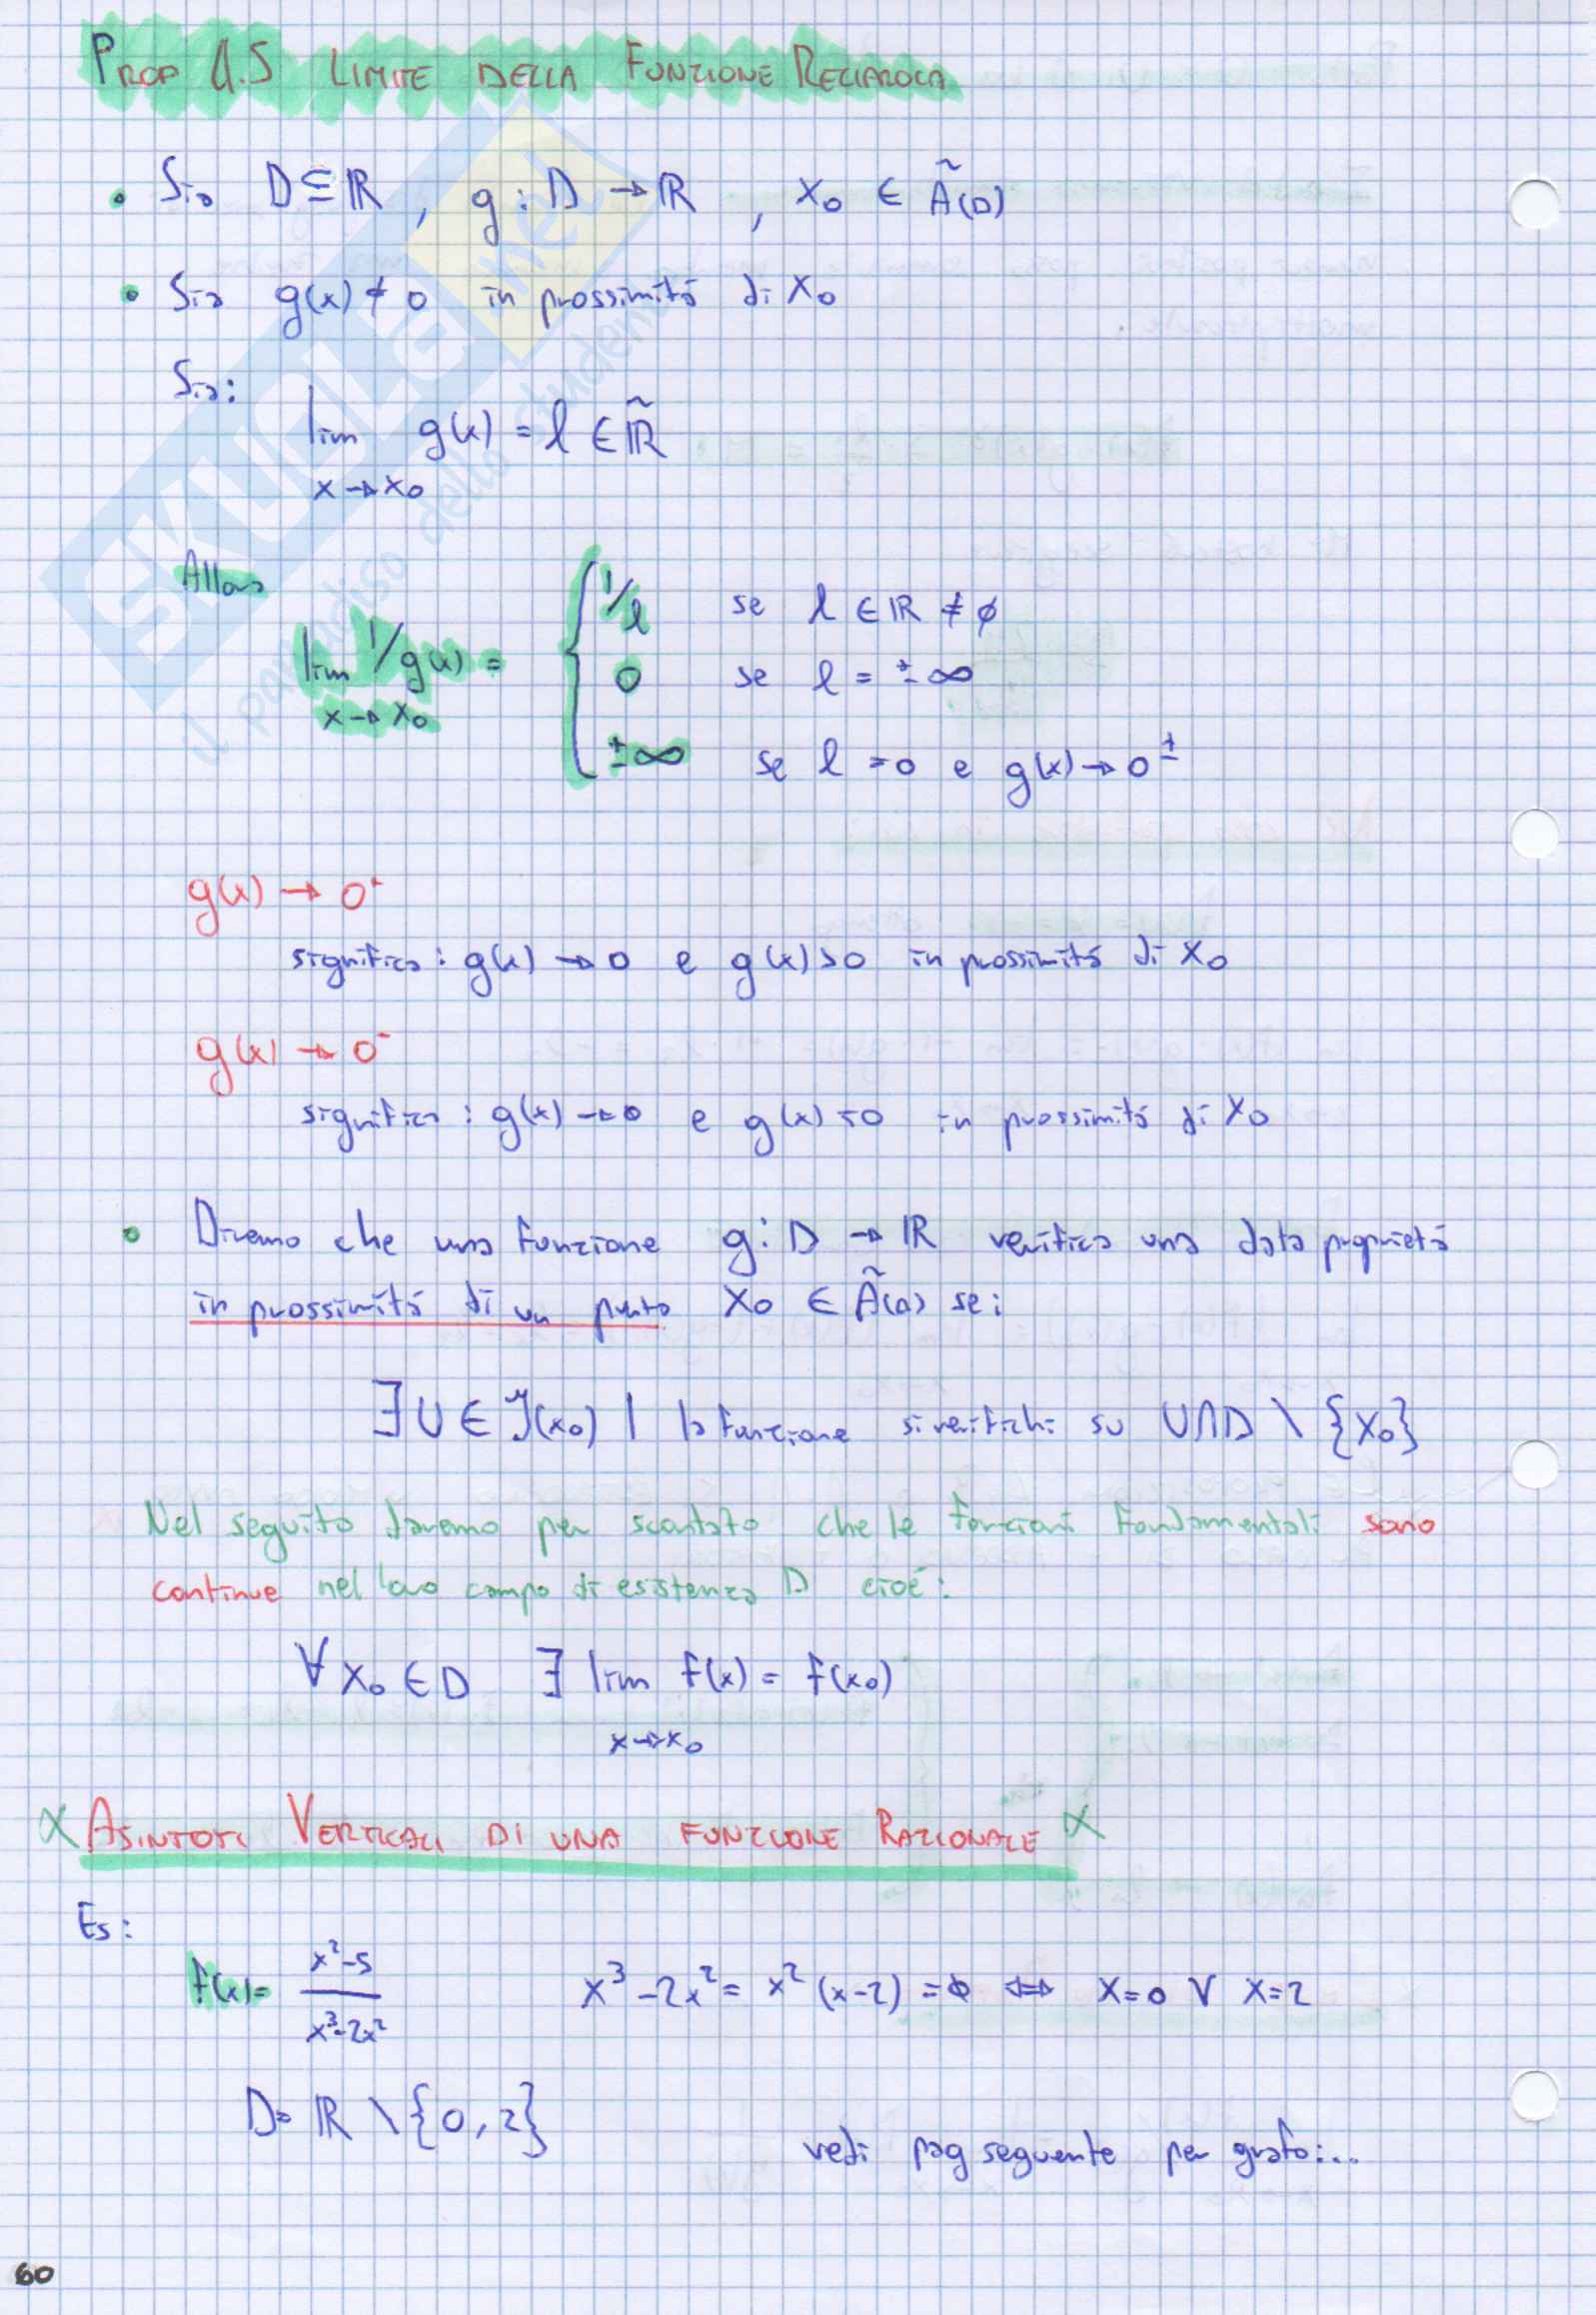 PROP 4.5 LIMITE DELLA FUNZIONE RECIPROCA
• Sia D⊆ℝ, g: D→ℝ, x₀ ∈ Ã(D)
• Sia g(x) ≠ 0 in prossimitá di x₀
Sia:
lim g(x) = l ∈ ℝ̃
x→x₀
Allora
lim 1/g(x) =
x→x₀
1/l se l ∈ ℝ ≠ ϕ
0 se l = ±∞
±∞ se l = 0 e g(x)→0±
g(x)→0⁺
significa: g(x)→0 e g(x)>0 in prossimitá di x₀
g(x)→0⁻
significa: g(x)→0 e g(x)<0 in prossimitá di x₀
• Diremo che una funzione g: D→ℝ verifica una data proprietá
in prossimitá di un punto x₀ ∈ Ã(D) se:
∃U∈ℐ(x₀) | la funzione si verifichi su U∩D \ {x₀}
Nel seguito daremo per scontato che le funzioni fondamentali sono
continue nel loro campo di esistenza D cioé:
∀x₀∈D ∃ lim f(x) = f(x₀)
x→x₀
x ASINTOTI VERTICALI DI UNA FUNZIONE RAZIONALE x
Es:
f(x)= x²-5 / x³-2x² x³-2x² = x²(x-2) = ϕ ⟺ x=0 ∨ x=2
D= ℝ \ {0,2}
vedi pag seguente per grafo:...
60
SKUOLA.net
il paradiso dello studente